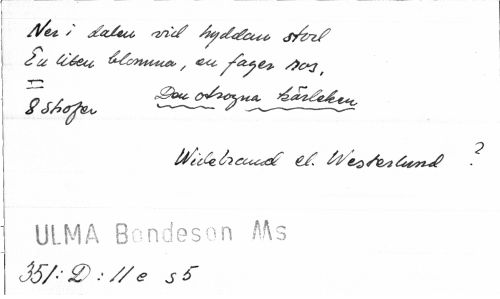 Ner i dalen vid hyddan stod
En liten blomma, en fager ros,
=
8 strofer Den otrogna kärleken
Widebrand el. Westerlund ?
ULMA Bondeson Ms
351:D:11e s5